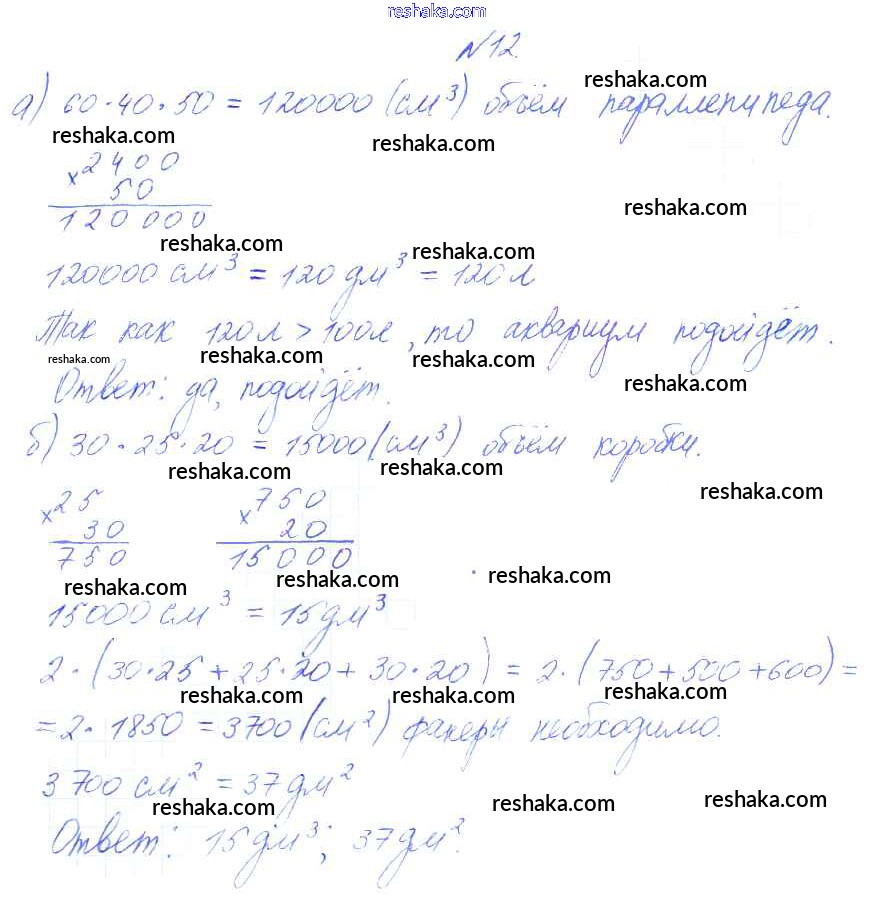 reshaka.com
N12.
reshaka.com
а) 60·40·50 = 120000 (см³) объём параллепипеда.
reshaka.com reshaka.com
× 2400
50
120 000
reshaka.com
reshaka.com reshaka.com
120000 см³ = 120 дм³ = 120 л
Так как 120л > 100л, то аквариум подойдёт.
reshaka.com reshaka.com reshaka.com
reshaka.com
Ответ: да, подойдёт.
б) 30·25·20 = 15000 (см³) объём коробки.
reshaka.com reshaka.com
reshaka.com
× 25 × 750
30 20
750 15000
reshaka.com reshaka.com reshaka.com
15000 см³ = 15 дм³
2·(30·25 + 25·20 + 30·20) = 2·(750+500+600) =
reshaka.com reshaka.com reshaka.com
= 2·1850 = 3700 (см²) фанеры необходимо.
3700 см² = 37 дм²
reshaka.com reshaka.com reshaka.com
Ответ: 15 дм³; 37 дм².